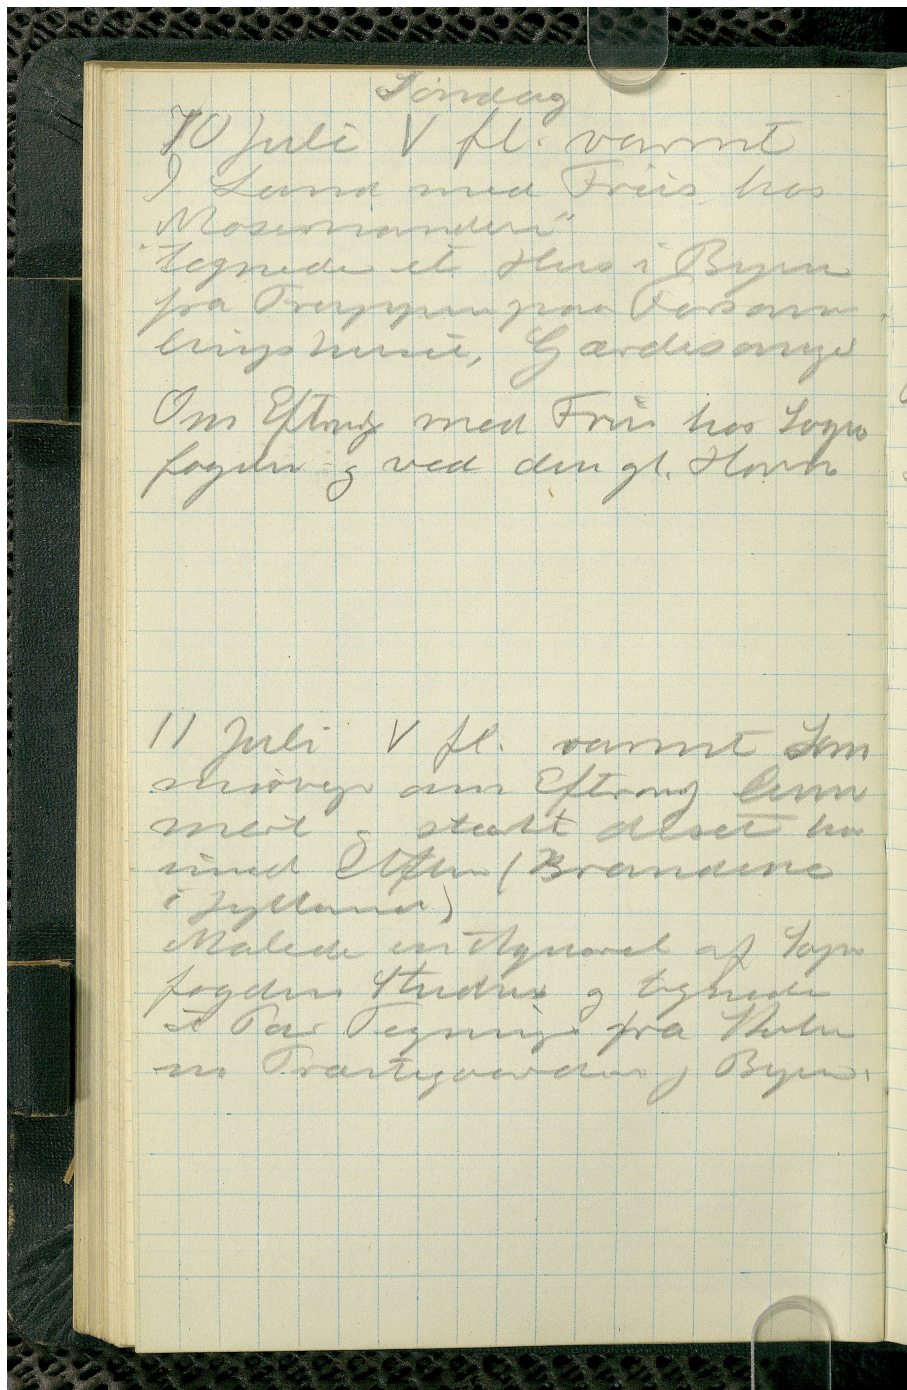 Søndag
10 Juli V fl. varmt
I Land med Friis hos
Mosemanden"
tegnede et Hus i Byen
fra Trappen paa Forsam
lingshuset, Gærdesanger
Om Eftmdg med Friis hos Sogne
fogden og ved den gl. Havn
11 Juli V fl. varmt Som
mervejr om Eftmdg
og stærkt diset ho
(Brandene
i Jylland)
Malede en Aquarel af Sogne
fogdens og tegnede
et Par Tegninger fra
Præstegaarden i Byen.